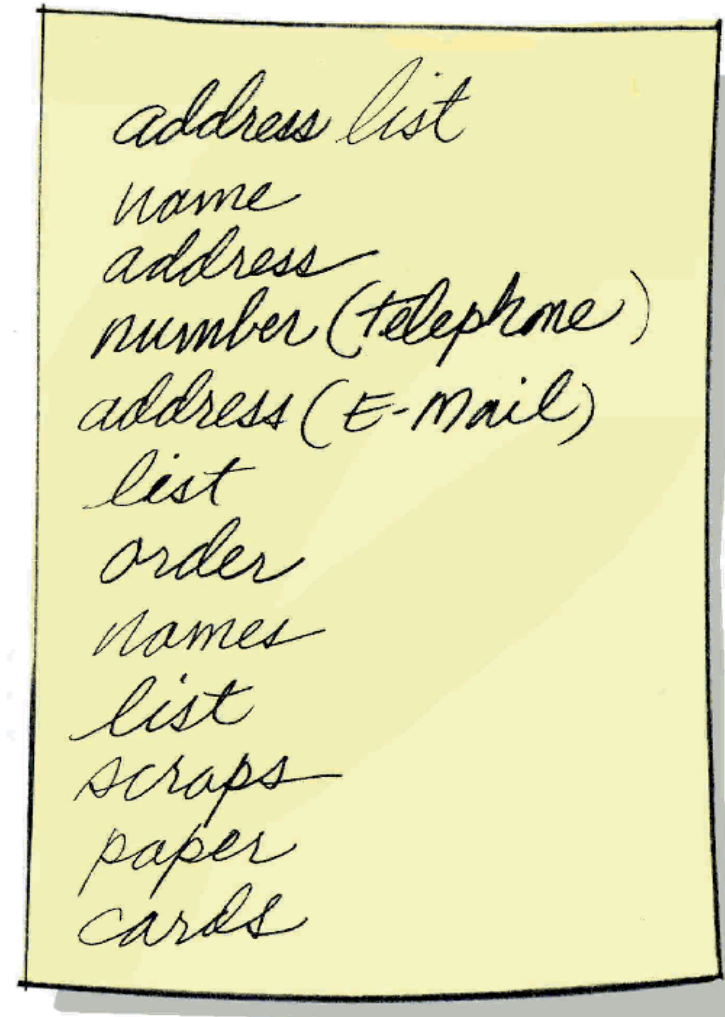 address list
name
address
number (telephone)
address (E-Mail)
list
order
names
list
scraps
paper
cards